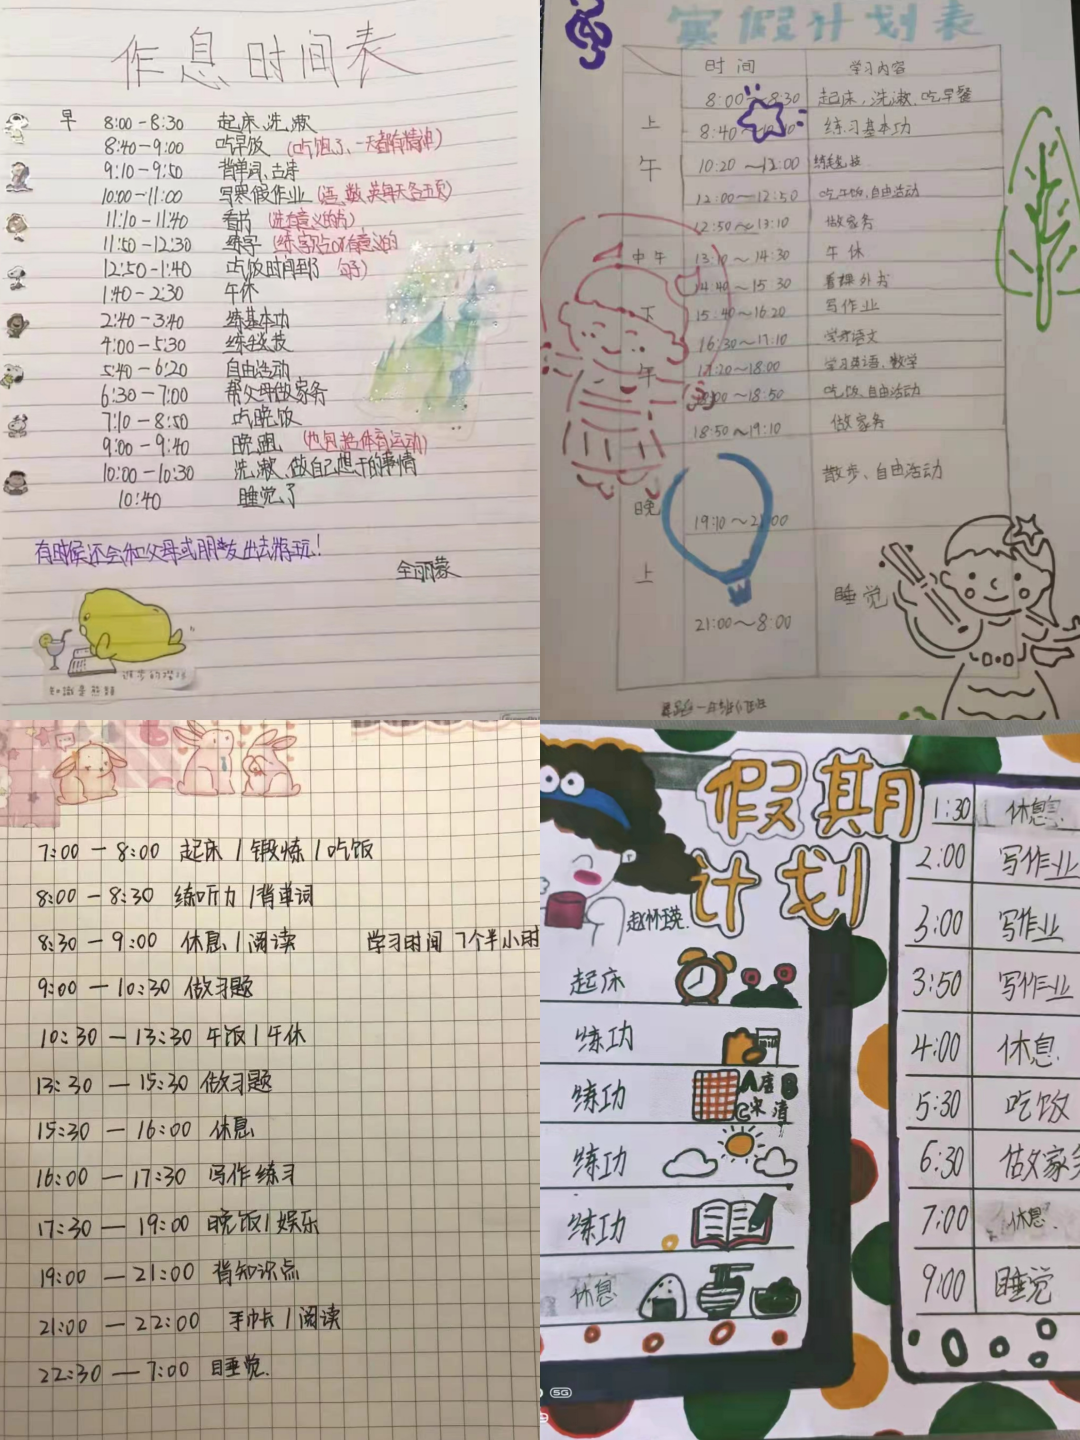 作息时间表
早 8:00-8:30 起床、洗漱
8:40-9:00 吃早饭 (吃饱了、一天都有精神)
9:10-9:50 背单词、古诗
10:00-11:00 写寒假作业 (语、数、英每天各五页)
11:10-11:40 看书 (选有意义的书)
11:50-12:30 练字 (练字帖or有意义的
12:50-1:40 吃饭时间到了 句子)
1:40-2:30 午休
2:40-3:40 练基本功
4:00-5:30 练毯技
5:40-6:20 自由活动
6:30-7:00 帮父母做家务
7:10-8:50 吃晚饭
9:00-9:40 晚跑 (也包括体育运动)
10:00-10:30 洗漱、做自己想干的事情
10:40 睡觉了
有时候还会和父母或朋友出去游玩!
全丽蒙
寒假计划表
时间 学习内容
8:00～8:30 起床、洗漱、吃早餐
上 8:40～ 练习基本功
午 10:20～12:00 练毯技
12:00～12:50 吃午饭,自由活动
12:50～13:10 做家务
中午 13:10～14:30 午休
14:40～15:30 看课外书
下 15:40～16:20 写作业
16:30～17:10 学习语文
午 17:20～18:00 学习英语、数学
～18:50 吃饭,自由活动
18:50～19:10 做家务
散步、自由活动
晚 19:10～21:00
上 睡觉
21:00～8:00
7:00-8:00 起床/锻炼/吃饭
8:00-8:30 练听力/背单词
8:30-9:00 休息/阅读 学习时间 7个半小时
9:00-10:30 做习题
10:30-13:30 午饭/午休
13:30-15:30 做习题
15:30-16:00 休息
16:00-17:30 写作练习
17:30-19:00 晚饭/娱乐
19:00-21:00 背知识点
21:00-22:00 手巾长/阅读
22:30-7:00 睡觉.
假期
计划
赵怀瑛.
起床
练功
练功
A唐B
C宋清
练功
练功
休息
1:30 休息
2:00 写作业
3:00 写作业
3:50 写作业
4:00 休息
5:30 吃饭
6:30 做家务
7:00 休息.
9:00 睡觉
5G